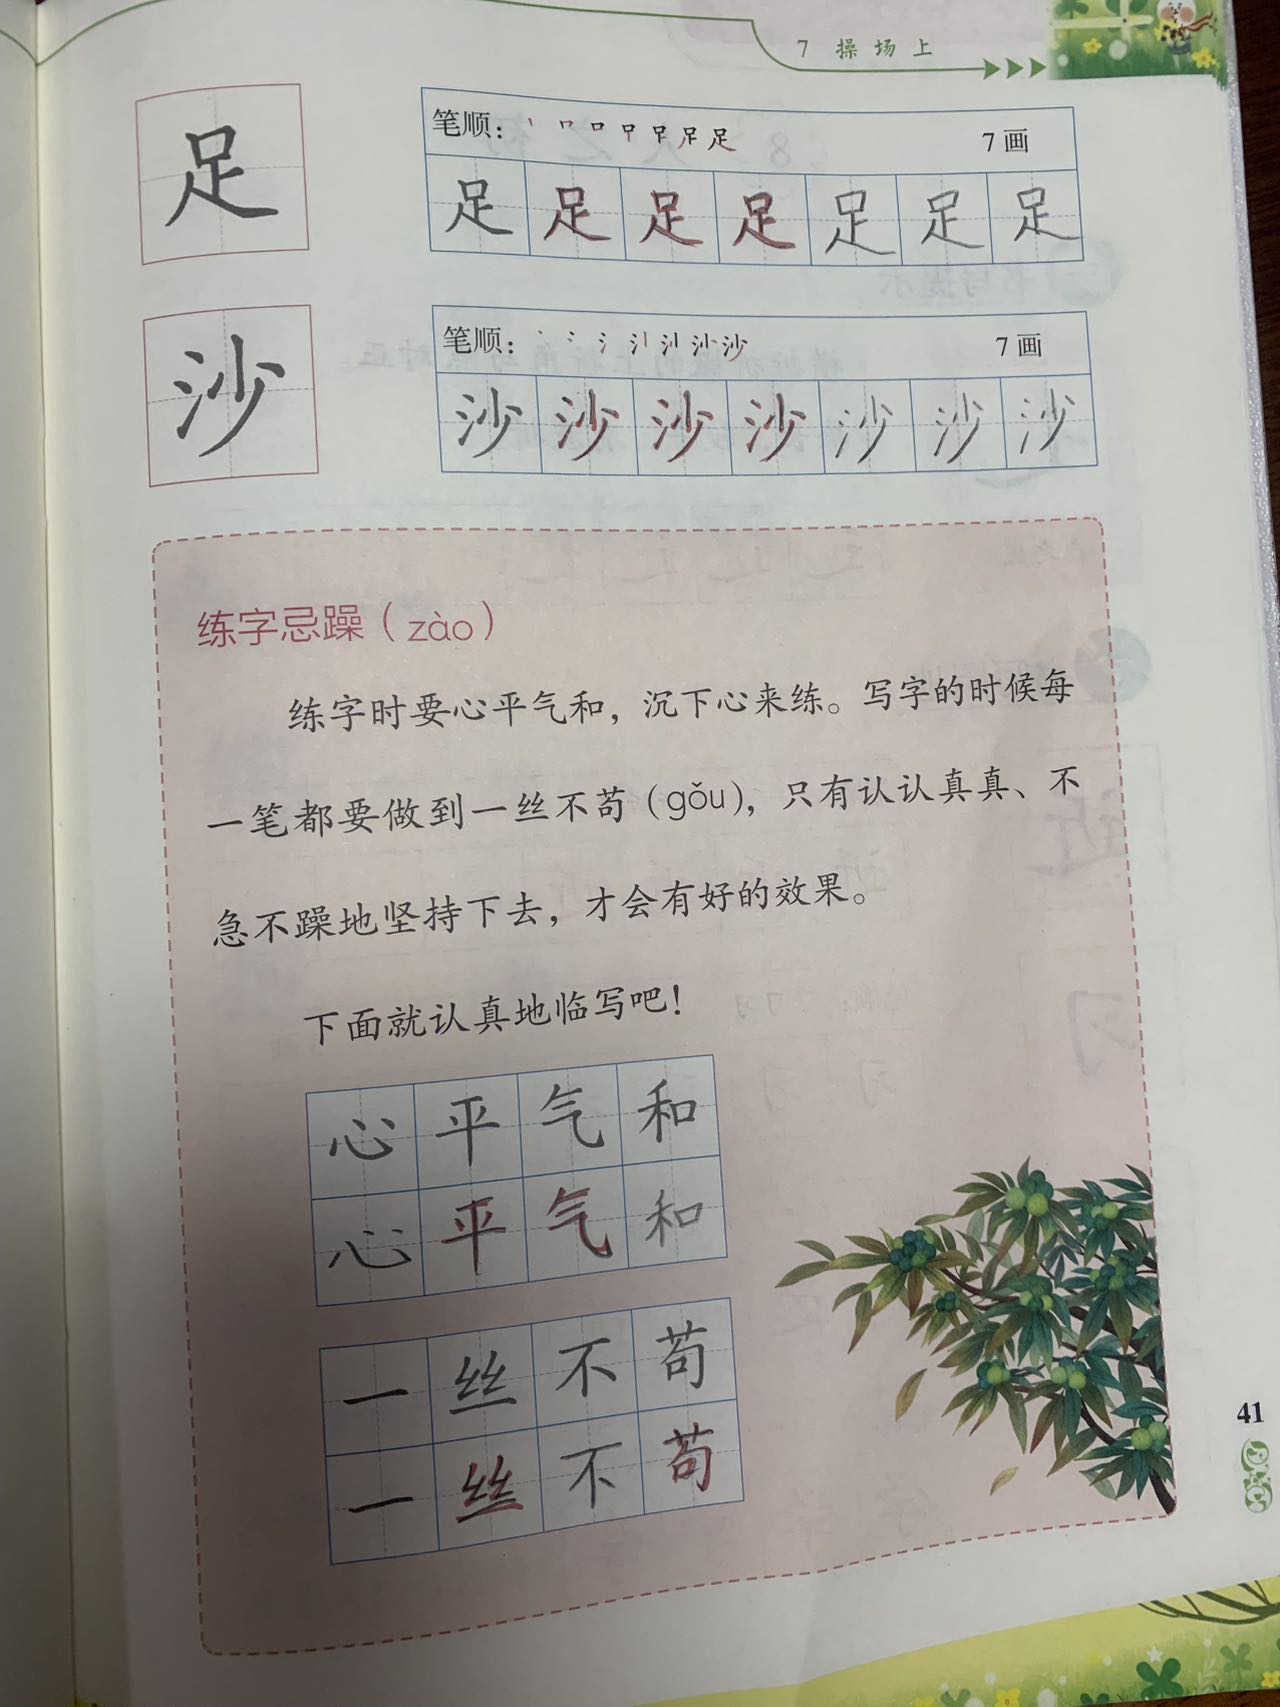 7 操场上
足
笔顺： 7画
足 足 足 足 足 足 足
沙
笔顺： 7画
沙 沙 沙 沙 沙 沙 沙
练字忌躁（zào）
练字时要心平气和，沉下心来练。写字的时候每
一笔都要做到一丝不苟（gǒu），只有认认真真、不
急不躁地坚持下去，才会有好的效果。
下面就认真地临写吧！
心 平 气 和
心 平 气 和
一 丝 不 苟
一 丝 不 苟
41